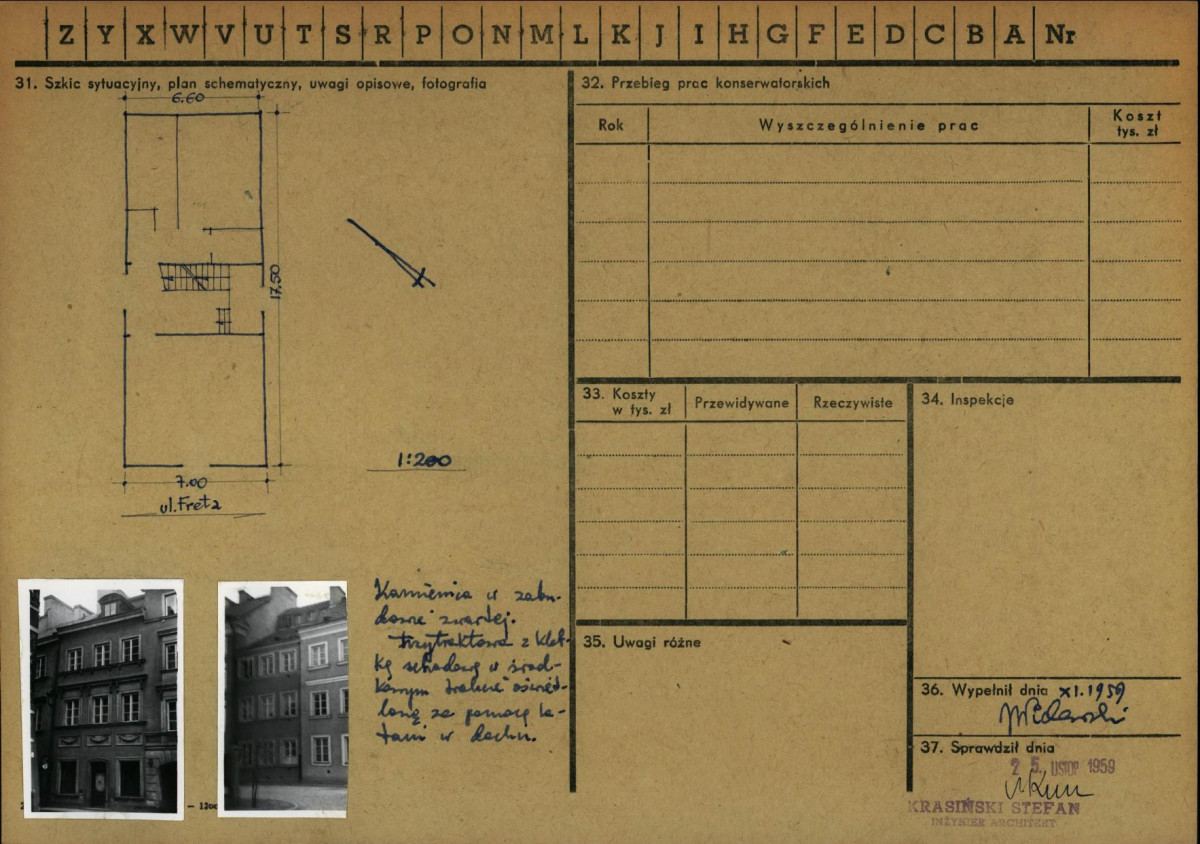 Z Y X W V U T S R P O N M L K J I H G F E D C B A Nr
31. Szkic sytuacyjny, plan schematyczny, uwagi opisowe, fotografia
6.60
17.50
1:200
7.00
ul. Freta
Kamienica w zabu-
dowie zwartej.
Trzytraktowa z klat-
ką schodową w środ-
kowym trakcie oświet-
loną za pomocą la-
tarni w dachu.
32. Przebieg prac konserwatorskich
Rok
Wyszczególnienie prac
Koszt
tys. zł
33. Koszty
w tys. zł
Przewidywane
Rzeczywiste
34. Inspekcje
35. Uwagi różne
36. Wypełnił dnia XI.1959
37. Sprawdził dnia
25. LISTOP 1959
KRASIŃSKI STEFAN
INŻYNIER ARCHITEKT